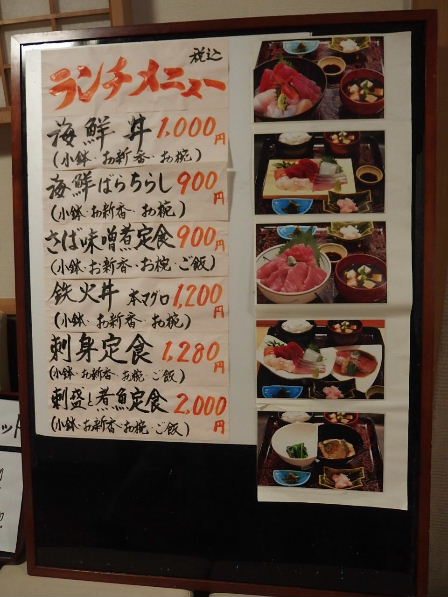 税込
ランチメニュー
海鮮丼 1,000円
(小鉢・お新香・お椀)
海鮮ばらちらし 900円
(小鉢・お新香・お椀)
さば味噌煮定食 900円
(小鉢・お新香・お椀・ご飯)
鉄火丼 本マグロ 1,200円
(小鉢・お新香・お椀)
刺身定食 1,280円
(小鉢・お新香・お椀・ご飯)
刺盛と煮魚定食 2,000円
(小鉢・お新香・お椀・ご飯)
ット